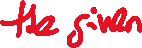 the given